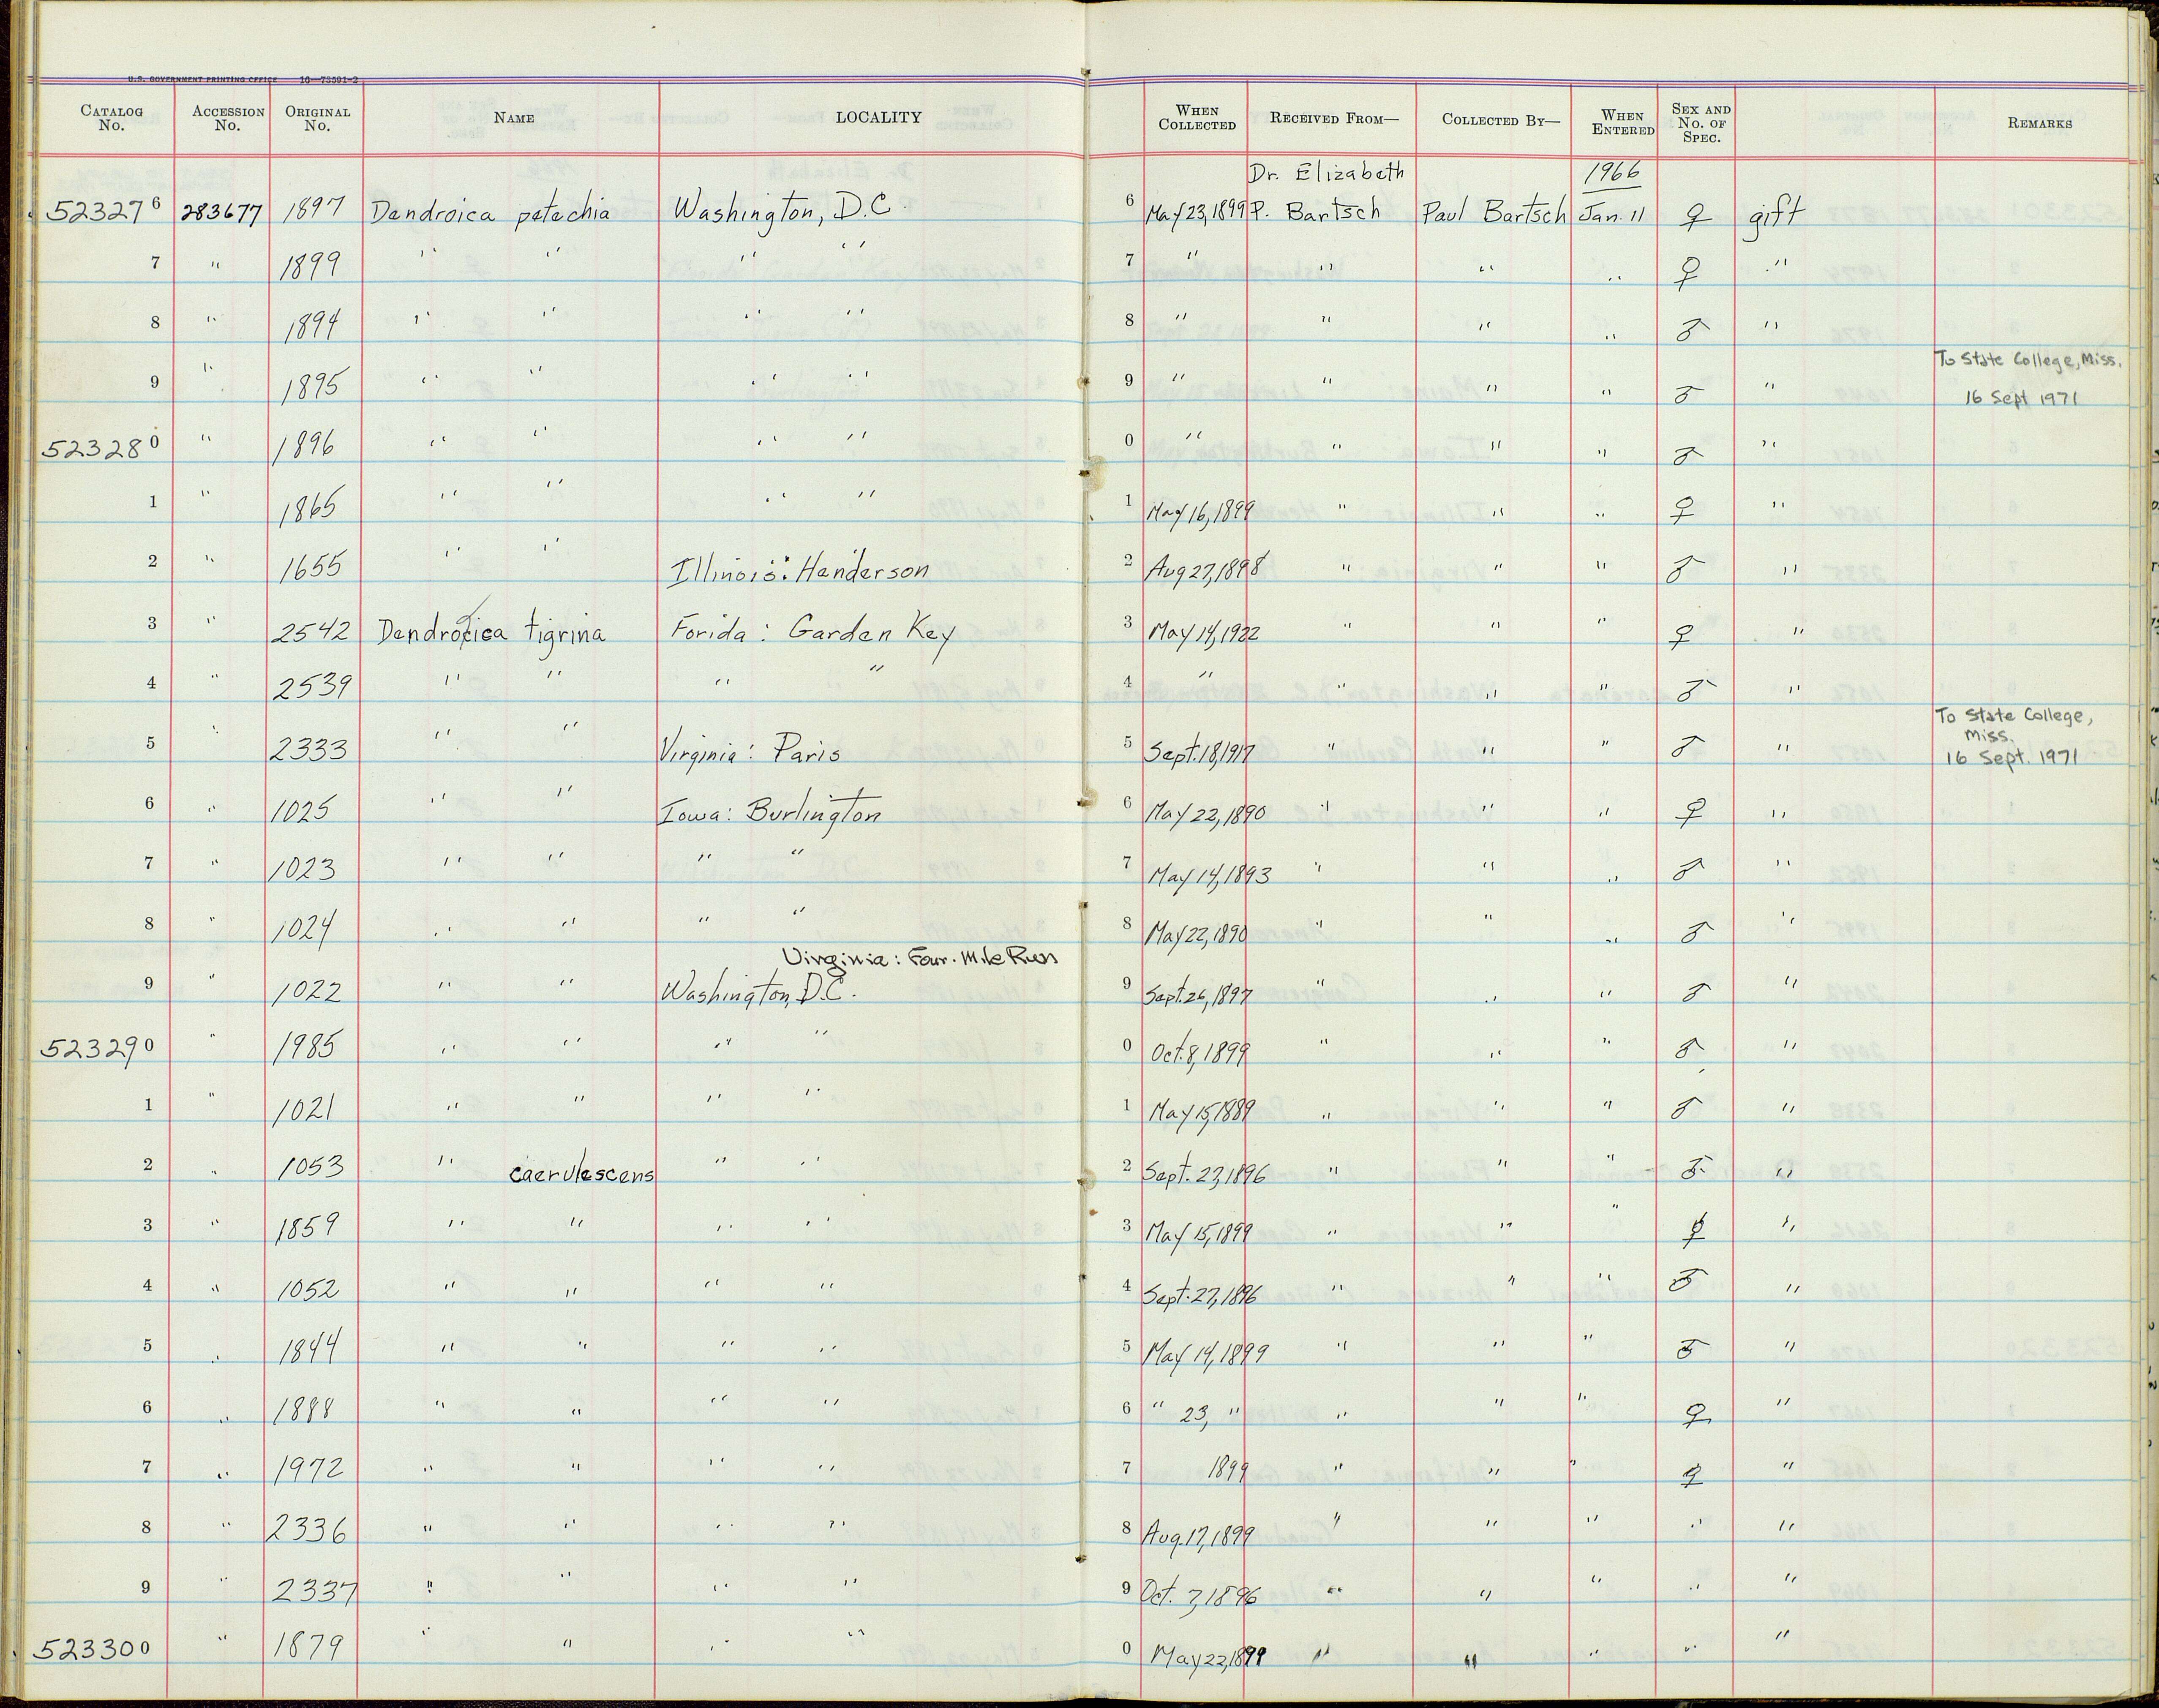 U.S. GOVERNMENT PRINTING OFFICE 16—73591-2
CATALOG No. ACCESSION No. ORIGINAL No. NAME LOCALITY WHEN COLLECTED RECEIVED FROM— COLLECTED BY— WHEN ENTERED SEX AND No. OF SPEC. REMARKS
Dr. Elizabeth 1966
523276 283677 1897 Dendroica petechia Washington, D.C. 6 May 23, 1899 P. Bartsch Paul Bartsch Jan. 11 ♀ gift
7 " 1899 " " " " 7 " " " " ♀ "
8 " 1894 " " " " 8 " " " " ♂ "
To State College, Miss.
9 " 1895 " " " " 9 " " " " ♂ " 16 Sept 1971
523280 " 1896 " " " " 0 " " " " ♂ "
1 " 1865 " " " " 1 May 16, 1899 " " " ♀ "
2 " 1655 " " Illinois: Henderson 2 Aug 27, 1898 " " " ♂ "
3 " 2542 Dendroica tigrina Forida: Garden Key 3 May 14, 1922 " " " ♀ "
4 " 2539 " " " " 4 " " " " ♂ "
To State College,
Miss.
5 " 2333 " " Virginia: Paris 5 Sept. 18, 1917 " " " ♂ " 16 Sept. 1971
6 " 1025 " " Iowa: Burlington 6 May 22, 1890 " " " ♀ "
7 " 1023 " " " " 7 May 14, 1893 " " " ♂ "
8 " 1024 " " " " 8 May 22, 1890 " " " ♂ "
Virginia: Four. Mile Run
9 " 1022 " " Washington, D.C. 9 Sept. 26, 1897 " " " ♂ "
523290 " 1985 " " " " 0 Oct. 8, 1899 " " " ♂ "
1 " 1021 " " " " 1 May 15, 1889 " " " ♂ "
2 " 1053 " caerulescens " " 2 Sept. 27, 1896 " " " ♂ "
3 " 1859 " " " " 3 May 15, 1899 " " " ♀ "
4 " 1052 " " " " 4 Sept. 27, 1896 " " " ♂ "
5 " 1844 " " " " 5 May 14, 1899 " " " ♂ "
6 " 1888 " " " " 6 " 23, " " " " ♀ "
7 " 1972 " " " " 7 1899 " " " ♀ "
8 " 2336 " " " " 8 Aug. 17, 1899 " " " " "
9 " 2337 " " " " 9 Oct. 7, 1896 " " " " "
523300 " 1879 " " " " 0 May 22, 1899 " " " " "